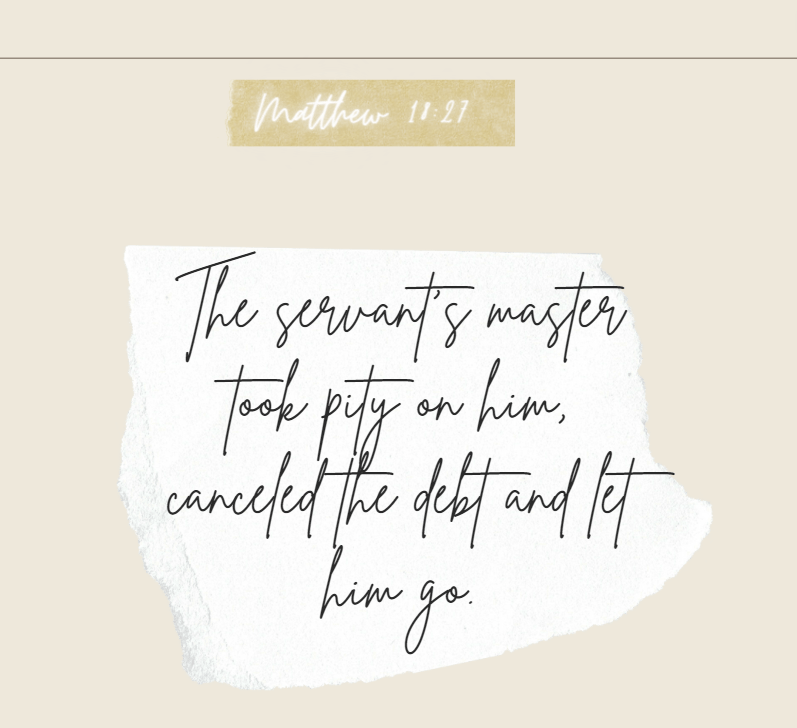 Matthew 18:27
The servant's master
took pity on him,
canceled the debt and let
him go.